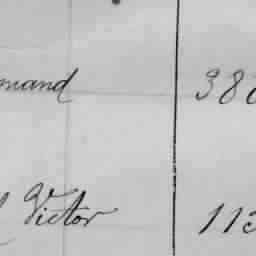 mand 38
Victor 113